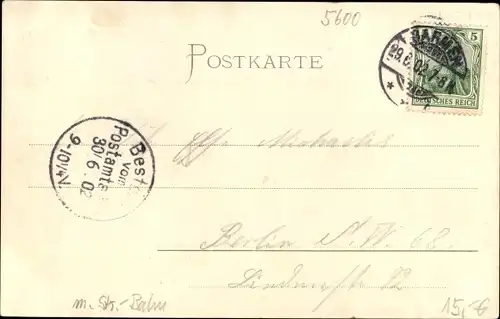 5600
POSTKARTE
BARMEN
29.6.02.7-8
5
DEUTSCHES REICH
Michaelis
Best
vom
Postamte
30/6.02
9-10¼V.
Berlin S.W. 68.
m. Str.-Bahn
15,-€